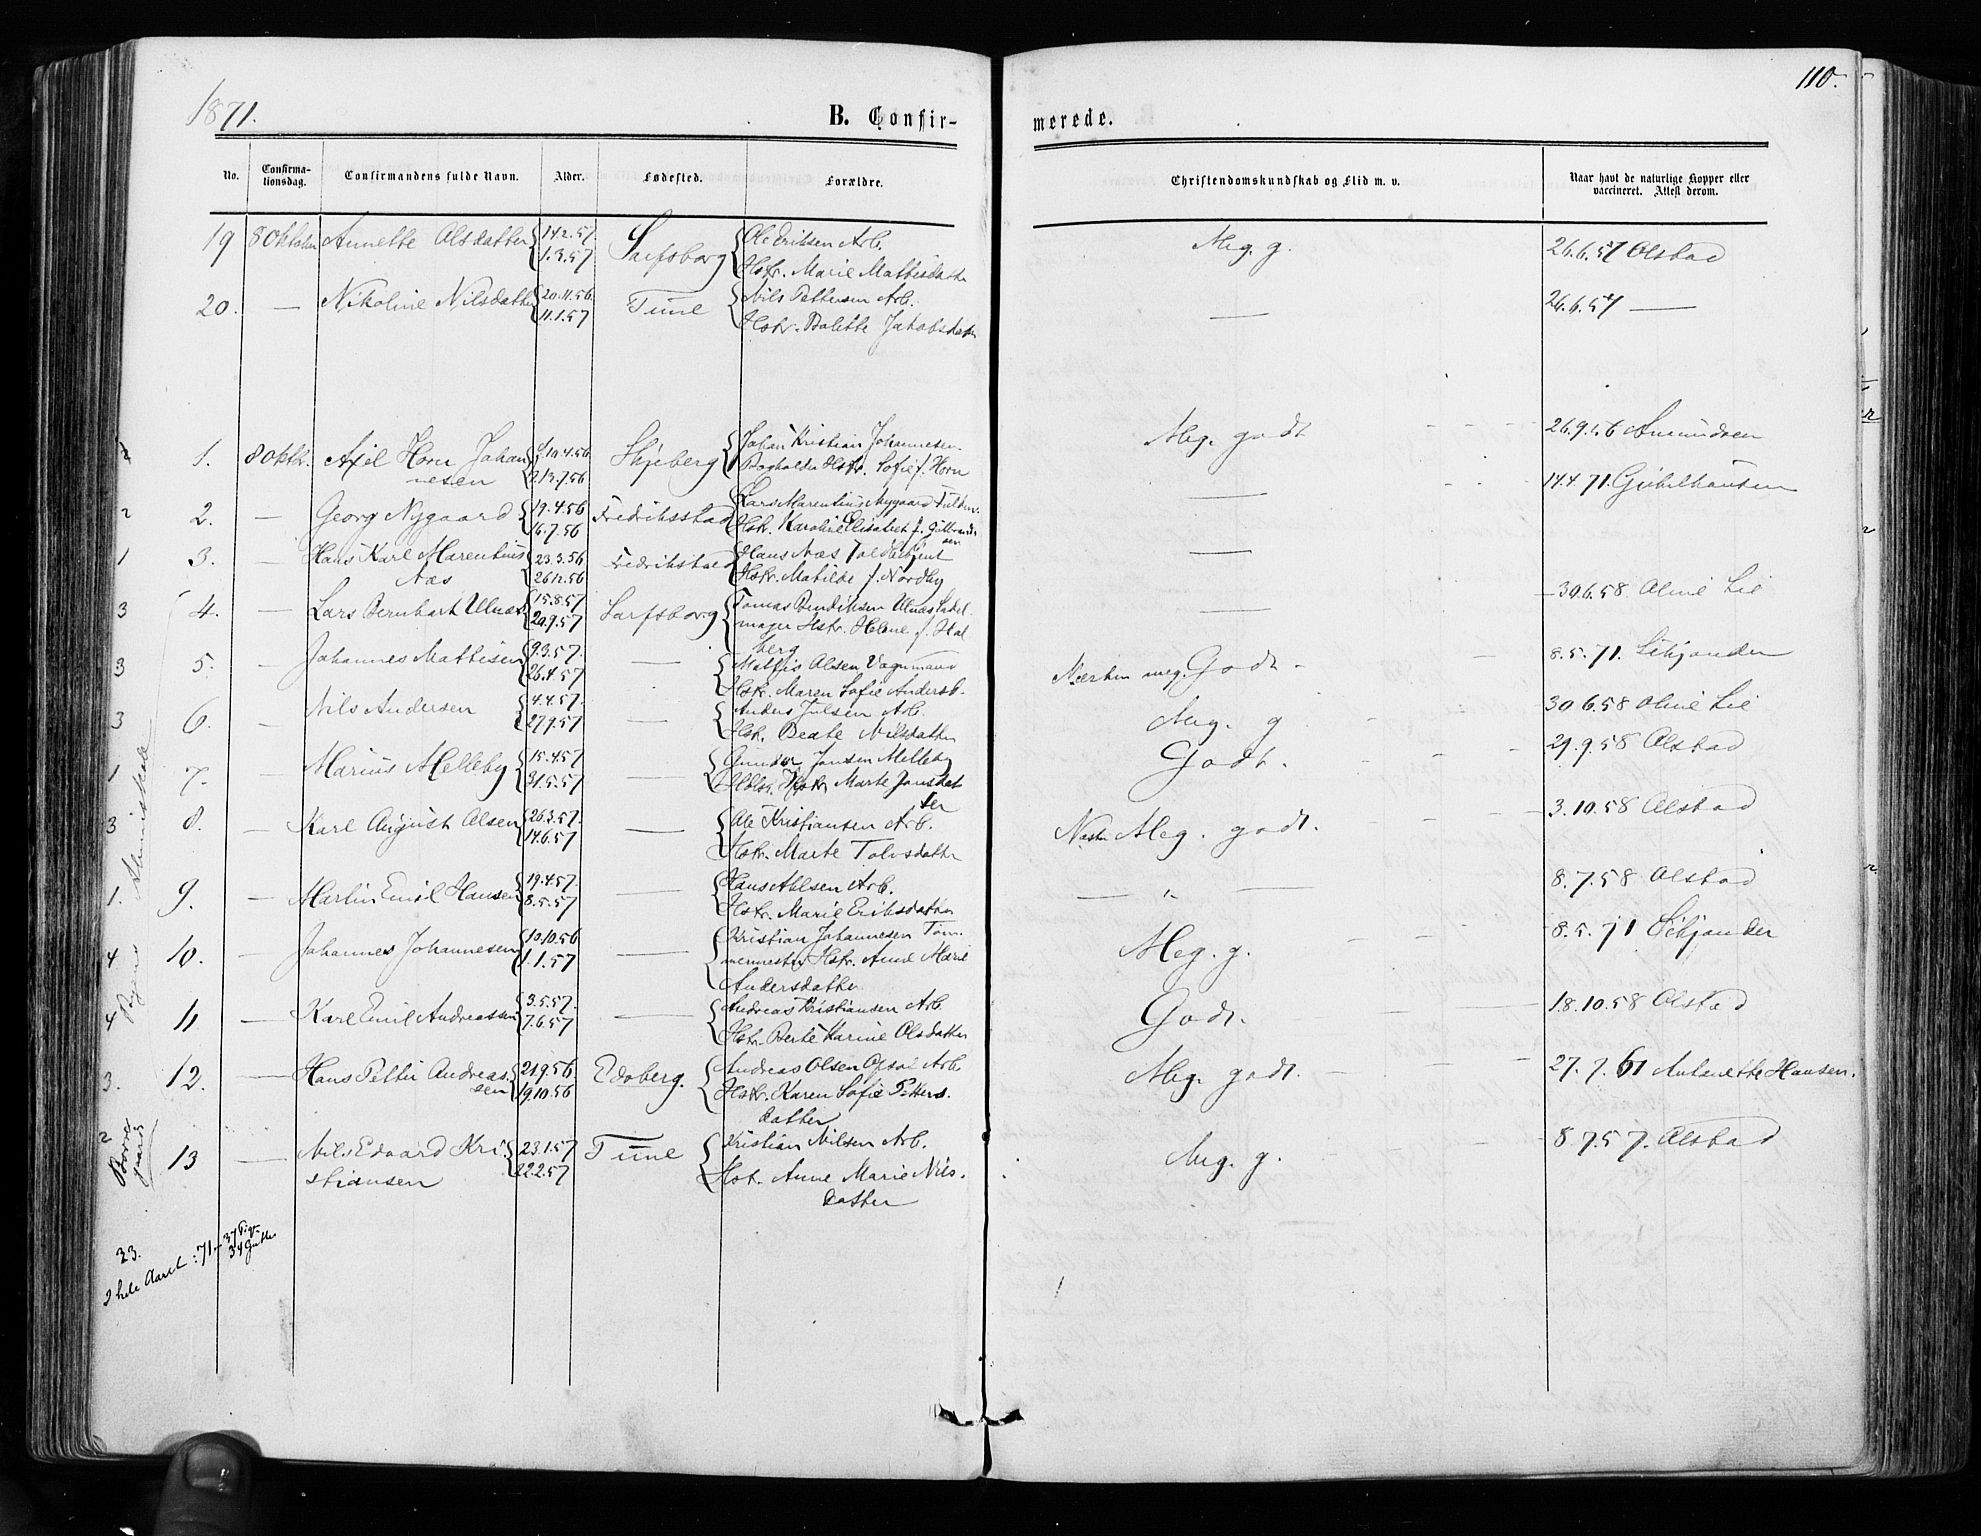 1871.
110.
B. Confir-
merede.
No.
Confirma-
tionsdag.
Confirmandens fulde Navn.
Alder.
Fødested.
Forældre.
Christendomskundskab og Flid m. v.
Naar havt de naturlige Kopper eller
vaccineret. Attest derom.
19 8 Oktober Annette Olsdatter 14.2.57 1.3.57 Sarpsborg Ole Eriksen Arb.
Hstr. Marie Mattisdatter
Meg. g. 26.6.57 Olstad
20. — Nikoline Nilsdatter 20.11.56 11.1.57 Tune Nils Pettersen Arb.
Hstr. Bolette Jakobsdatter
— 26.6.57 —
1. 8 Oktbr. Axel Horn Johan
nesen 10.4.56 13.7.56 Skjeberg Johan Kristian Johannesen
Bogholder Hstr. Sofie f. Horn
Meg. godt 26.9.56 Amundsen
2 2. — Georg Nygaard 19.4.56 16.7.56 Fredriksstad Lars Marentius Nygaard
Hstr. Karoline Elisabet f. Gulbrand
sen
— 14.4.71.
1 3. — Hans Karl Marentius
Næs 23.3.56 26.12.56 Fredrikstad Hans Næs Toldbetjent
Hstr. Matilde f. Nordby
—
3 4. — Lars Bernhart Ulnæs 15.8.57 20.9.57 Sarpsborg Tomas Bendiksen Ulnæs Sadel
mager Hstr. Helene f. Hal
berg
— 30.6.58 Oline Lie
3 5. — Johannes Mattisen 9.3.57. 26.4.57 — Mattis Olsen Vognmand
Hstr. Maren Sofie Andersd.
Næsten meg. Godt 8.5.71.
3 6. — Nils Andersen 4.4.57. 27.9.57 — Anders Julsen Arb.
Hstr. Beate Nilsdatter
Meg. g 30 6.58 Oline Lie
1 7. — Marius Melleby 15.4.57 31.5.57 — Gunder Jansen Melleby
Hstr. Marte Jansdat
ter
Godt. 29.9.58 Olstad
3 8. — Karl August Olsen 26.3.57. 14.6.57 — Ole Kristiansen Arb.
Hstr. Marte Tolvsdatter
Næstn Meg. godt. 3.10.58 Olstad
1. 9. — Martin Emil Hansen 19.4.57. 8.5.57 — Hans Ahlsen Arb.
Hstr. Marie Eriksdatter
— " — 8.7.58 Olstad
4 10. — Johannes Johannesen 10.10.56 1.1.57 — Kristian Johannesen Tøm
mermester Hstr. Anne Marie
Andersdatter
Meg. g. 8.5.71
4 11. — Karl Emil Andreassen 3.5.57. 7.6.57 — Andreas Kristiansen Arb.
Hstr. Berte Karine Olsdatter
Godt. 18.10.58 Olstad
3. 12. — Hans Petter Andreas
sen 21.9.56 19.10.56 Edsberg. Andreas Olsen Opsal Arb.
Hstr. Karen Sofie Petters
datter
Meg. godt. 27.7.61 Antonette Hansen.
2 13 — Nils Edvard Kri
stiansen 23.1.57 22.2.57 Tune Kristian Nilsen Arb.
Hst. Anne Marie Nils
datter
Meg. g. 8.7.57. Olstad
Almueskole
33.
I hele Aaret: 71 - 37 Pigr
34 Gutter